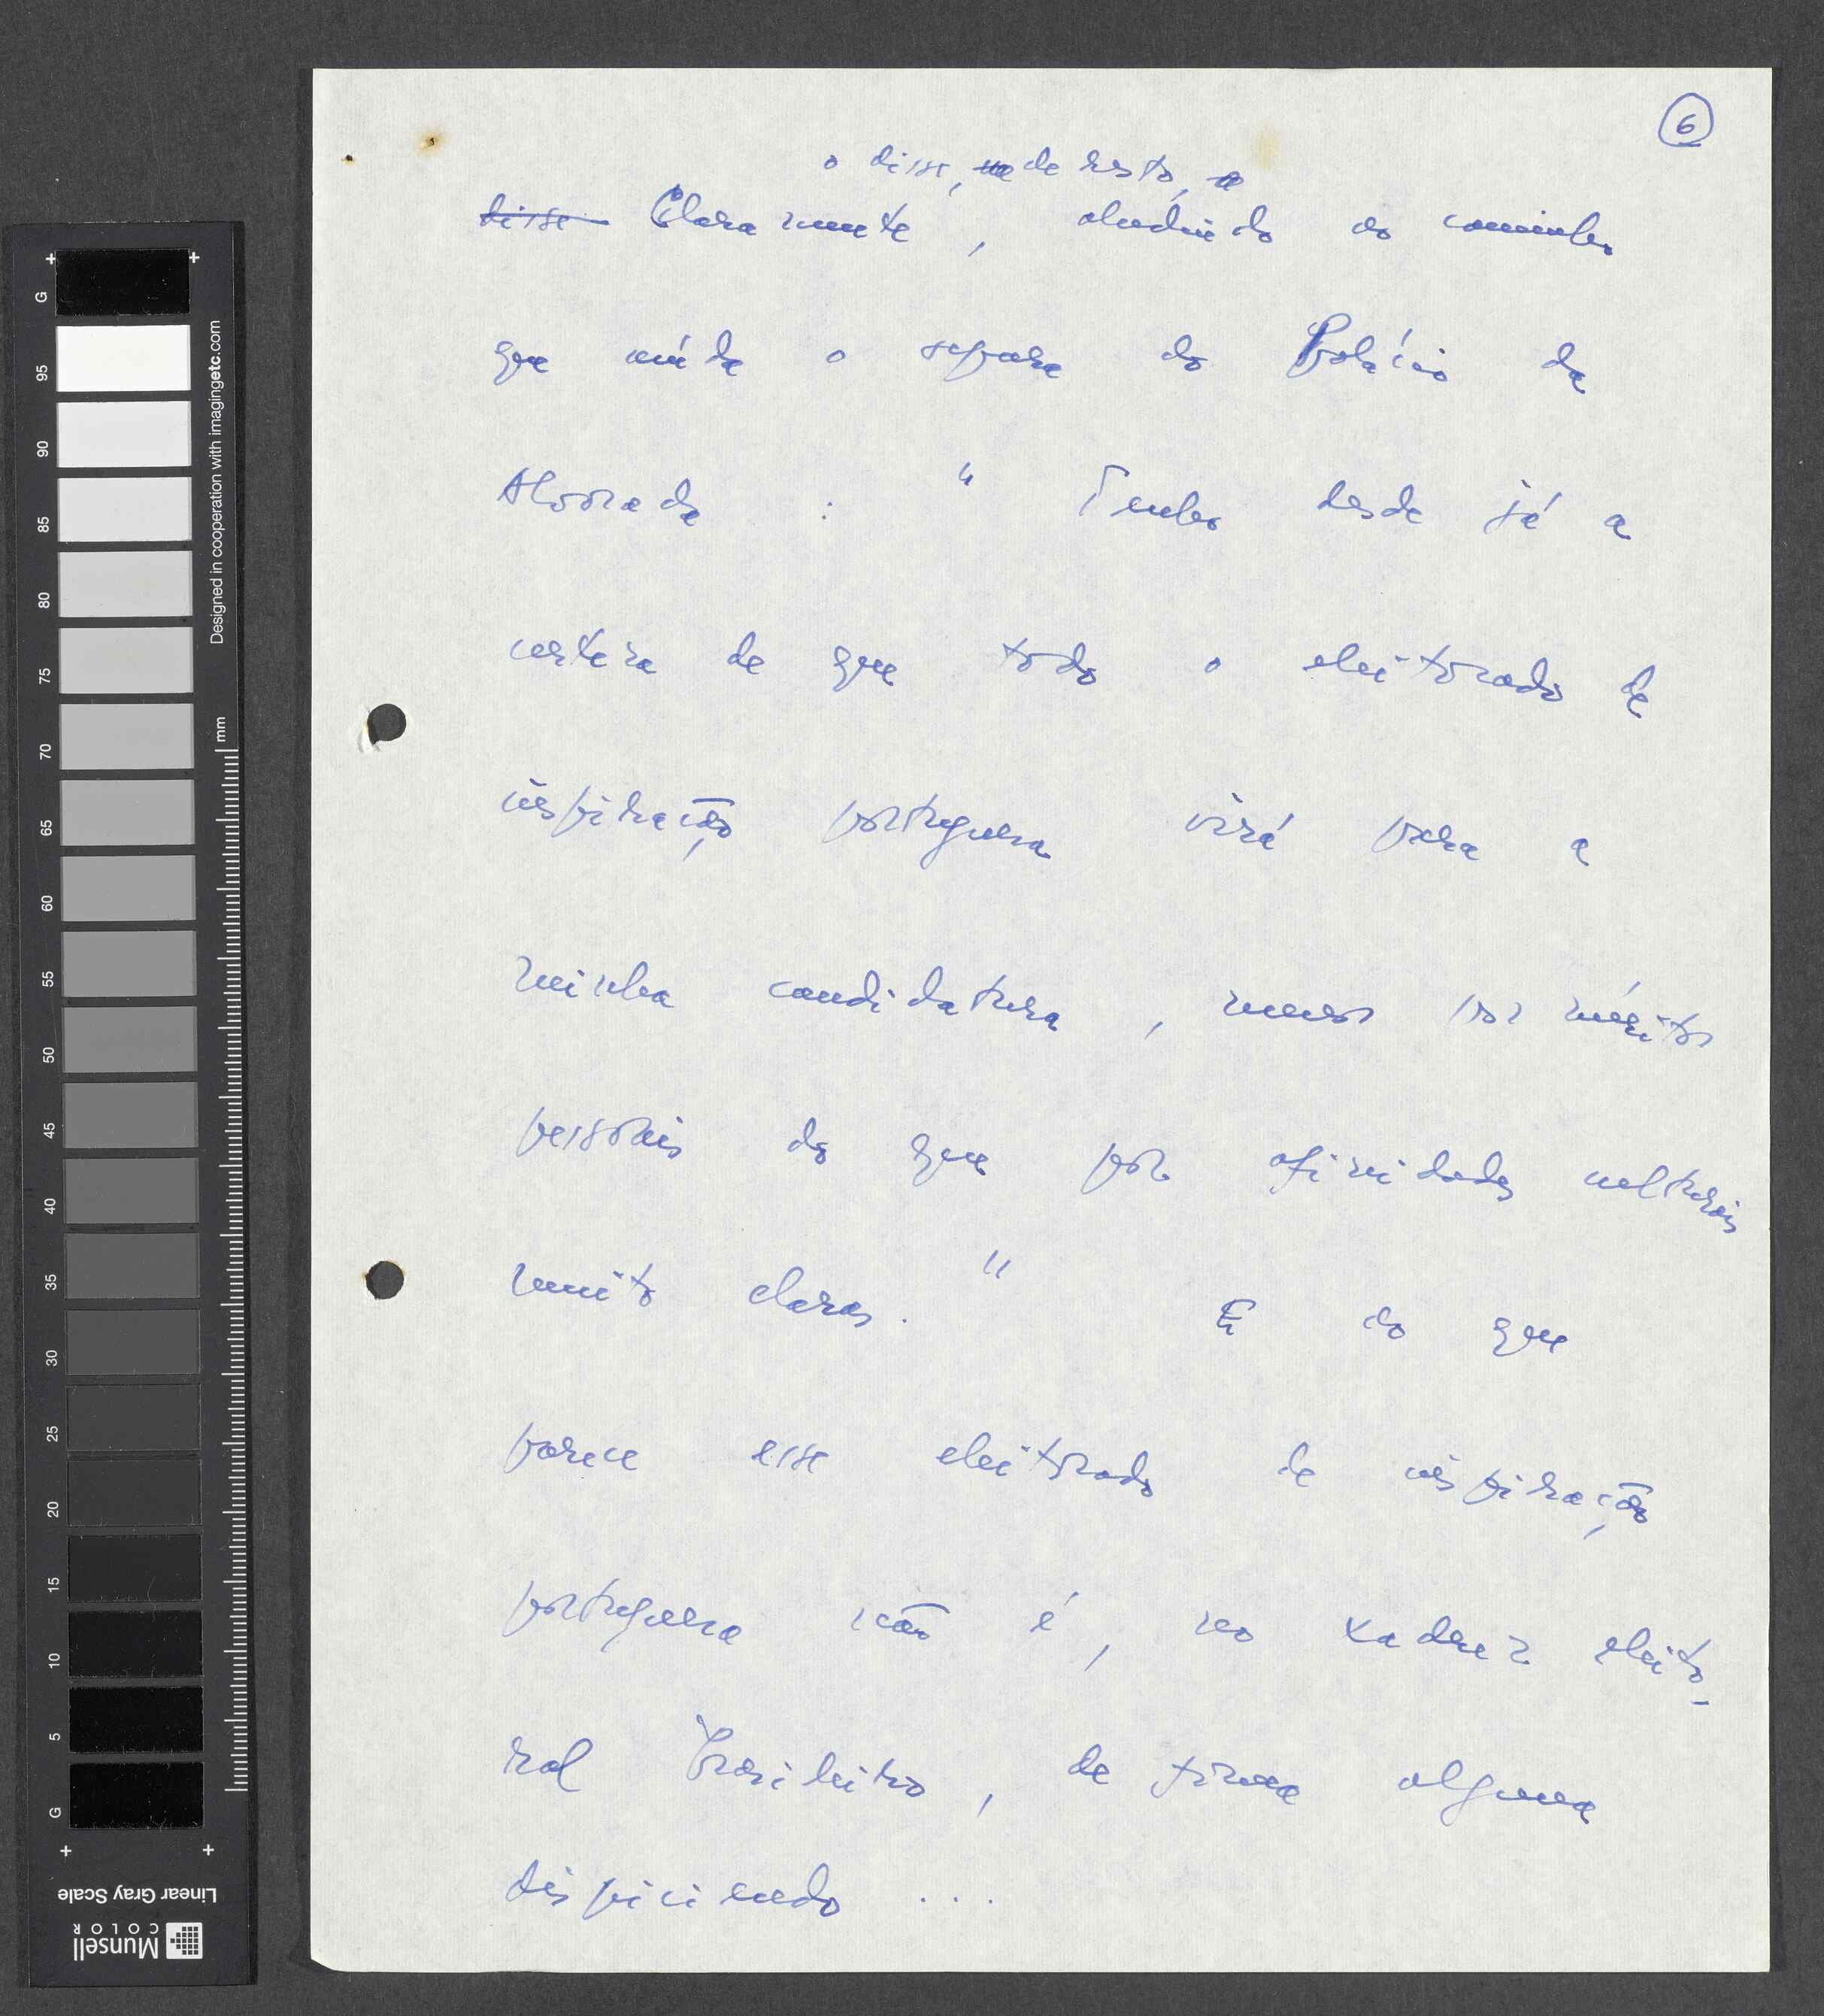 6
o disse, de resto,
disse Claramente, aludindo ao caminho
que ainda o separa do Palácio da
Alvorada : " Tenho desde já a
certeza de que todo o eleitorado de
inspiração portuguesa virá para a
minha candidatura , menos por méritos
pessoais do que por afinidades culturais
muito claras. " E ao que
parece esse eleitorado de inspiração
portuguesa não é, no xadrez eleito-
ral brasileiro, de forma alguma
dispiciendo ...
+ +
G
95
90
85
80
75
70
65
60
55
50
45
40
35
30
25
20
15
10
5
G
+ +
Designed in cooperation with imagingetc.com
mm
Linear Gray Scale
Munsell
COLOR